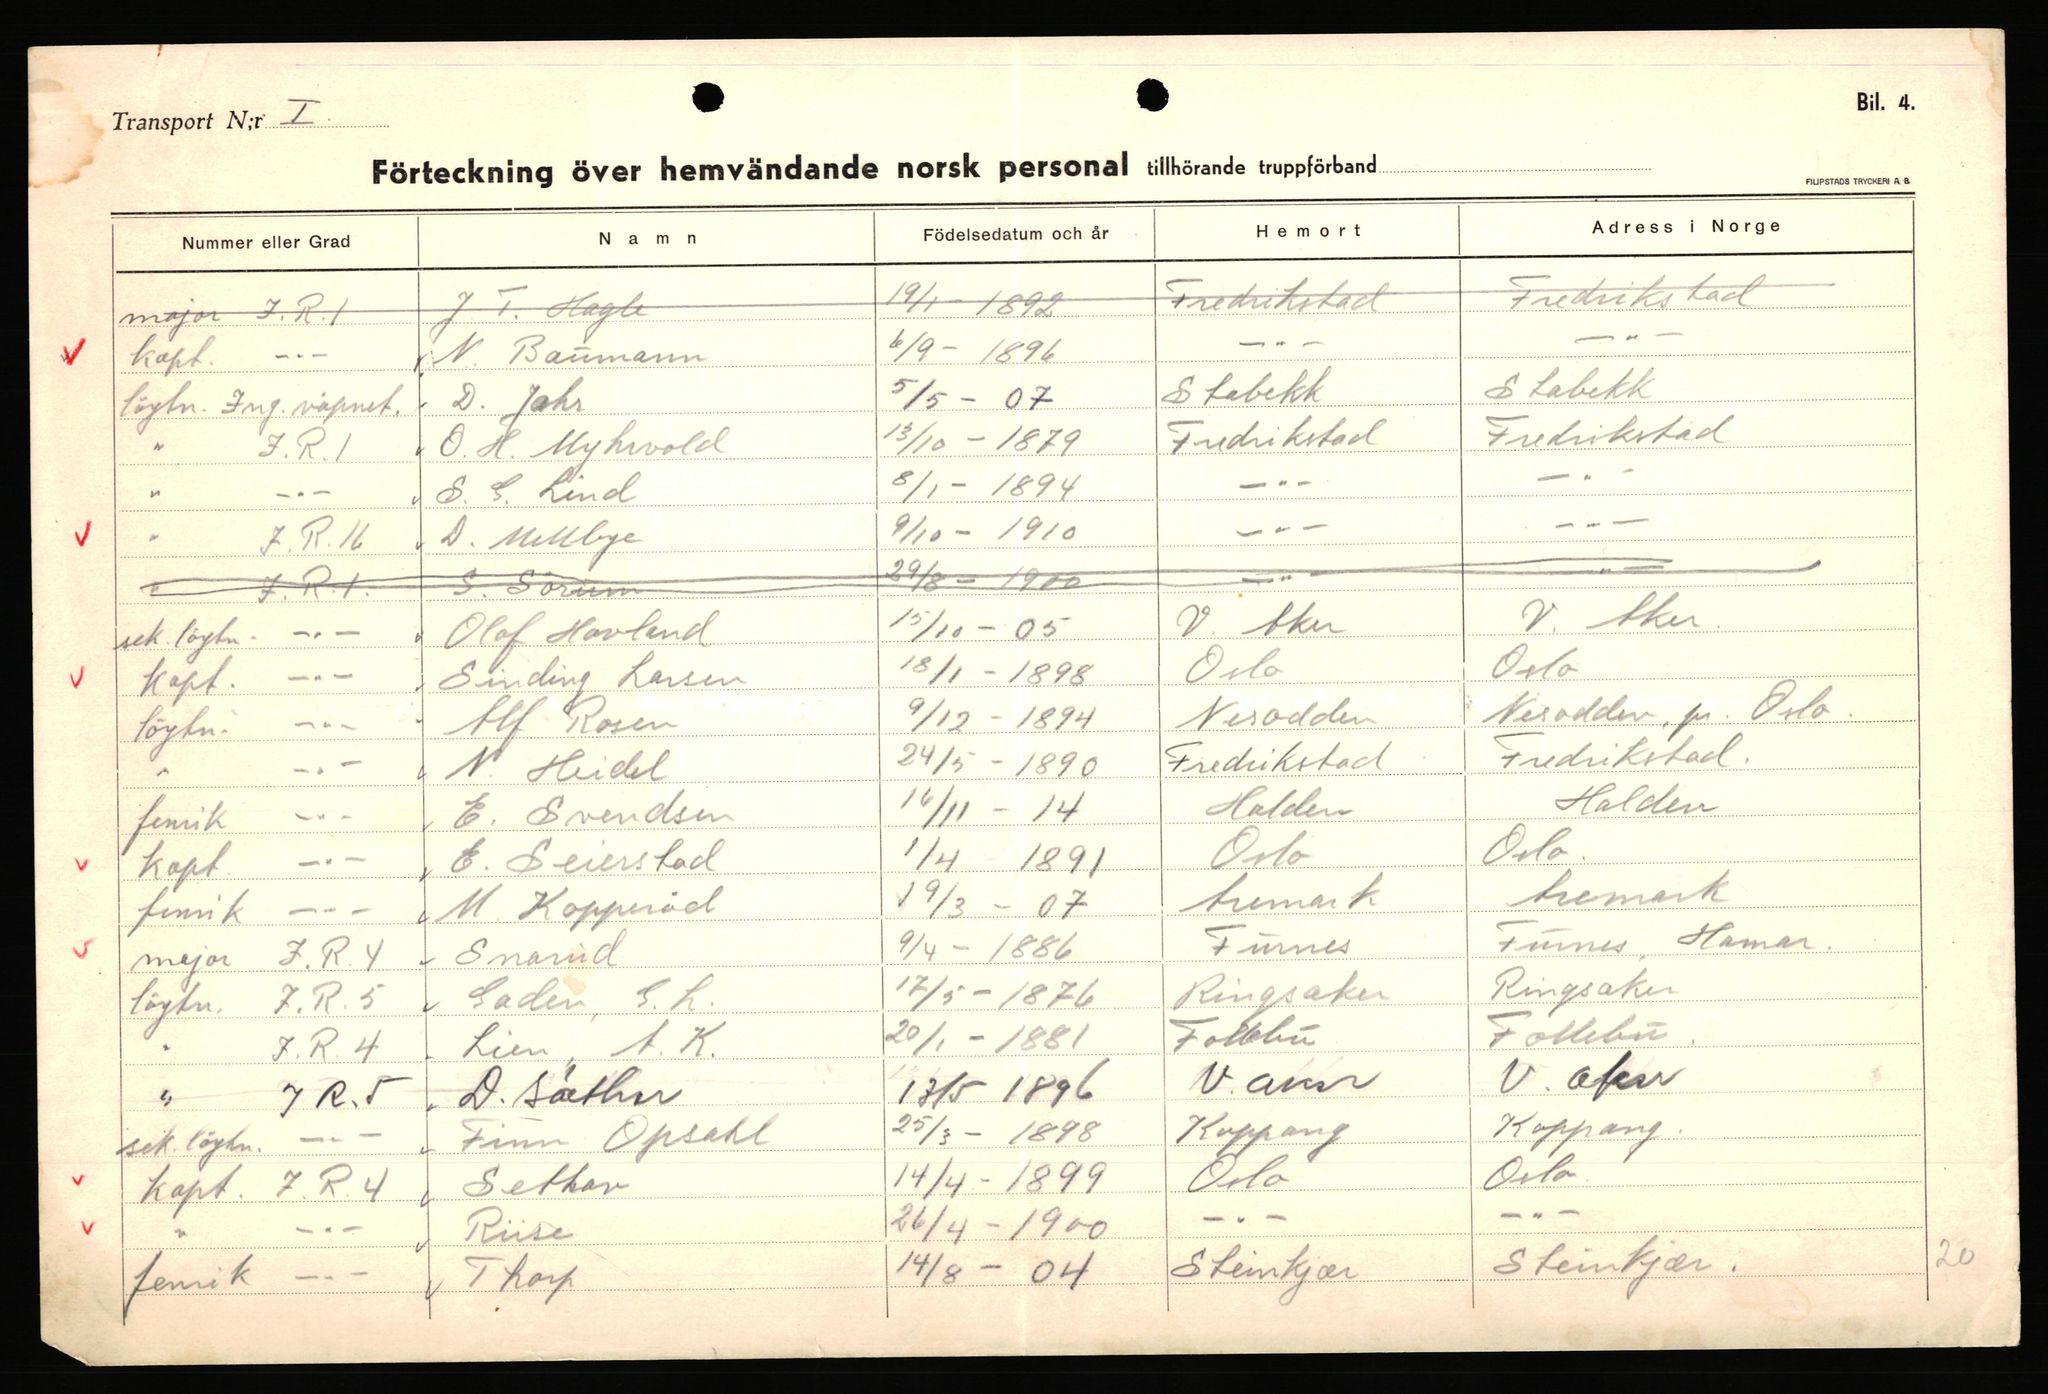 Bil. 4.
Transport N;r I
Förteckning över hemvändande norsk personal tillhörande truppförband
FILIPSTADS TRYCKERI A. B.
Nummer eller Grad Namn Födelsedatum och år Hemort Adress i Norge
major I.R.1 J. T. Hagle 19/1 - 1892 Fredrikstad Fredrikstad
kapt. -"- N. Baumann 6/9 - 1896 -"- -"-
löytn. Ing. våpnet. D. Jahr 5/5 - 07 Stabekk Stabekk
" I.R.1 O. H. Myhrvold 13/10 - 1879 Fredrikstad Fredrikstad
" -"- S. G. Lind 8/1 - 1894 -"- -"-
" I.R.16 D. Mellbye 9/10 - 1910 -"- -"-
" I.R.1. S. Sörum 29/8 - 1900 -"- -"-
sek. löytn. -"- Olaf Hovland 15/10 - 05 V. Aker V. Aker
kapt. -"- Sinding Larsen 18/1 - 1898 Oslo Oslo
löytn. -"- Alf Rosen 9/12 - 1894 Nesodden Nesodden, pr. Oslo.
" -"- N. Heidel 24/5 - 1890 Fredrikstad Fredrikstad.
fenrik -"- E. Svendsen 16/11 - 14 Halden Halden
kapt. -"- E. Seierstad 1/4 1891 Oslo Oslo.
fenrik -"- M. Kopperöd 19/3 - 07 Aremark Aremark
major I.R.4 Snarud 9/4 - 1886 Furnes Furnes, Hamar.
löytn. I.R.5 Gaden, G. L. 17/5 - 1876 Ringsaker Ringsaker
" I.R.4 Lien, A. K. 20/1 - 1881 Follebu Follebu.
" I R.5 D. Säther 13/5 1896 V. aker V. aker
sek. löytn. -"- Finn Opsahl 25/3 - 1898 Koppang Koppang.
kapt. I.R.4 Sethav 14/4 - 1899 Oslo Oslo.
" -"- Riise 26/4 - 1900 -"- -"-
fenrik -"- Thorp 14/8 - 04 Steinkjær Steinkjær.
20